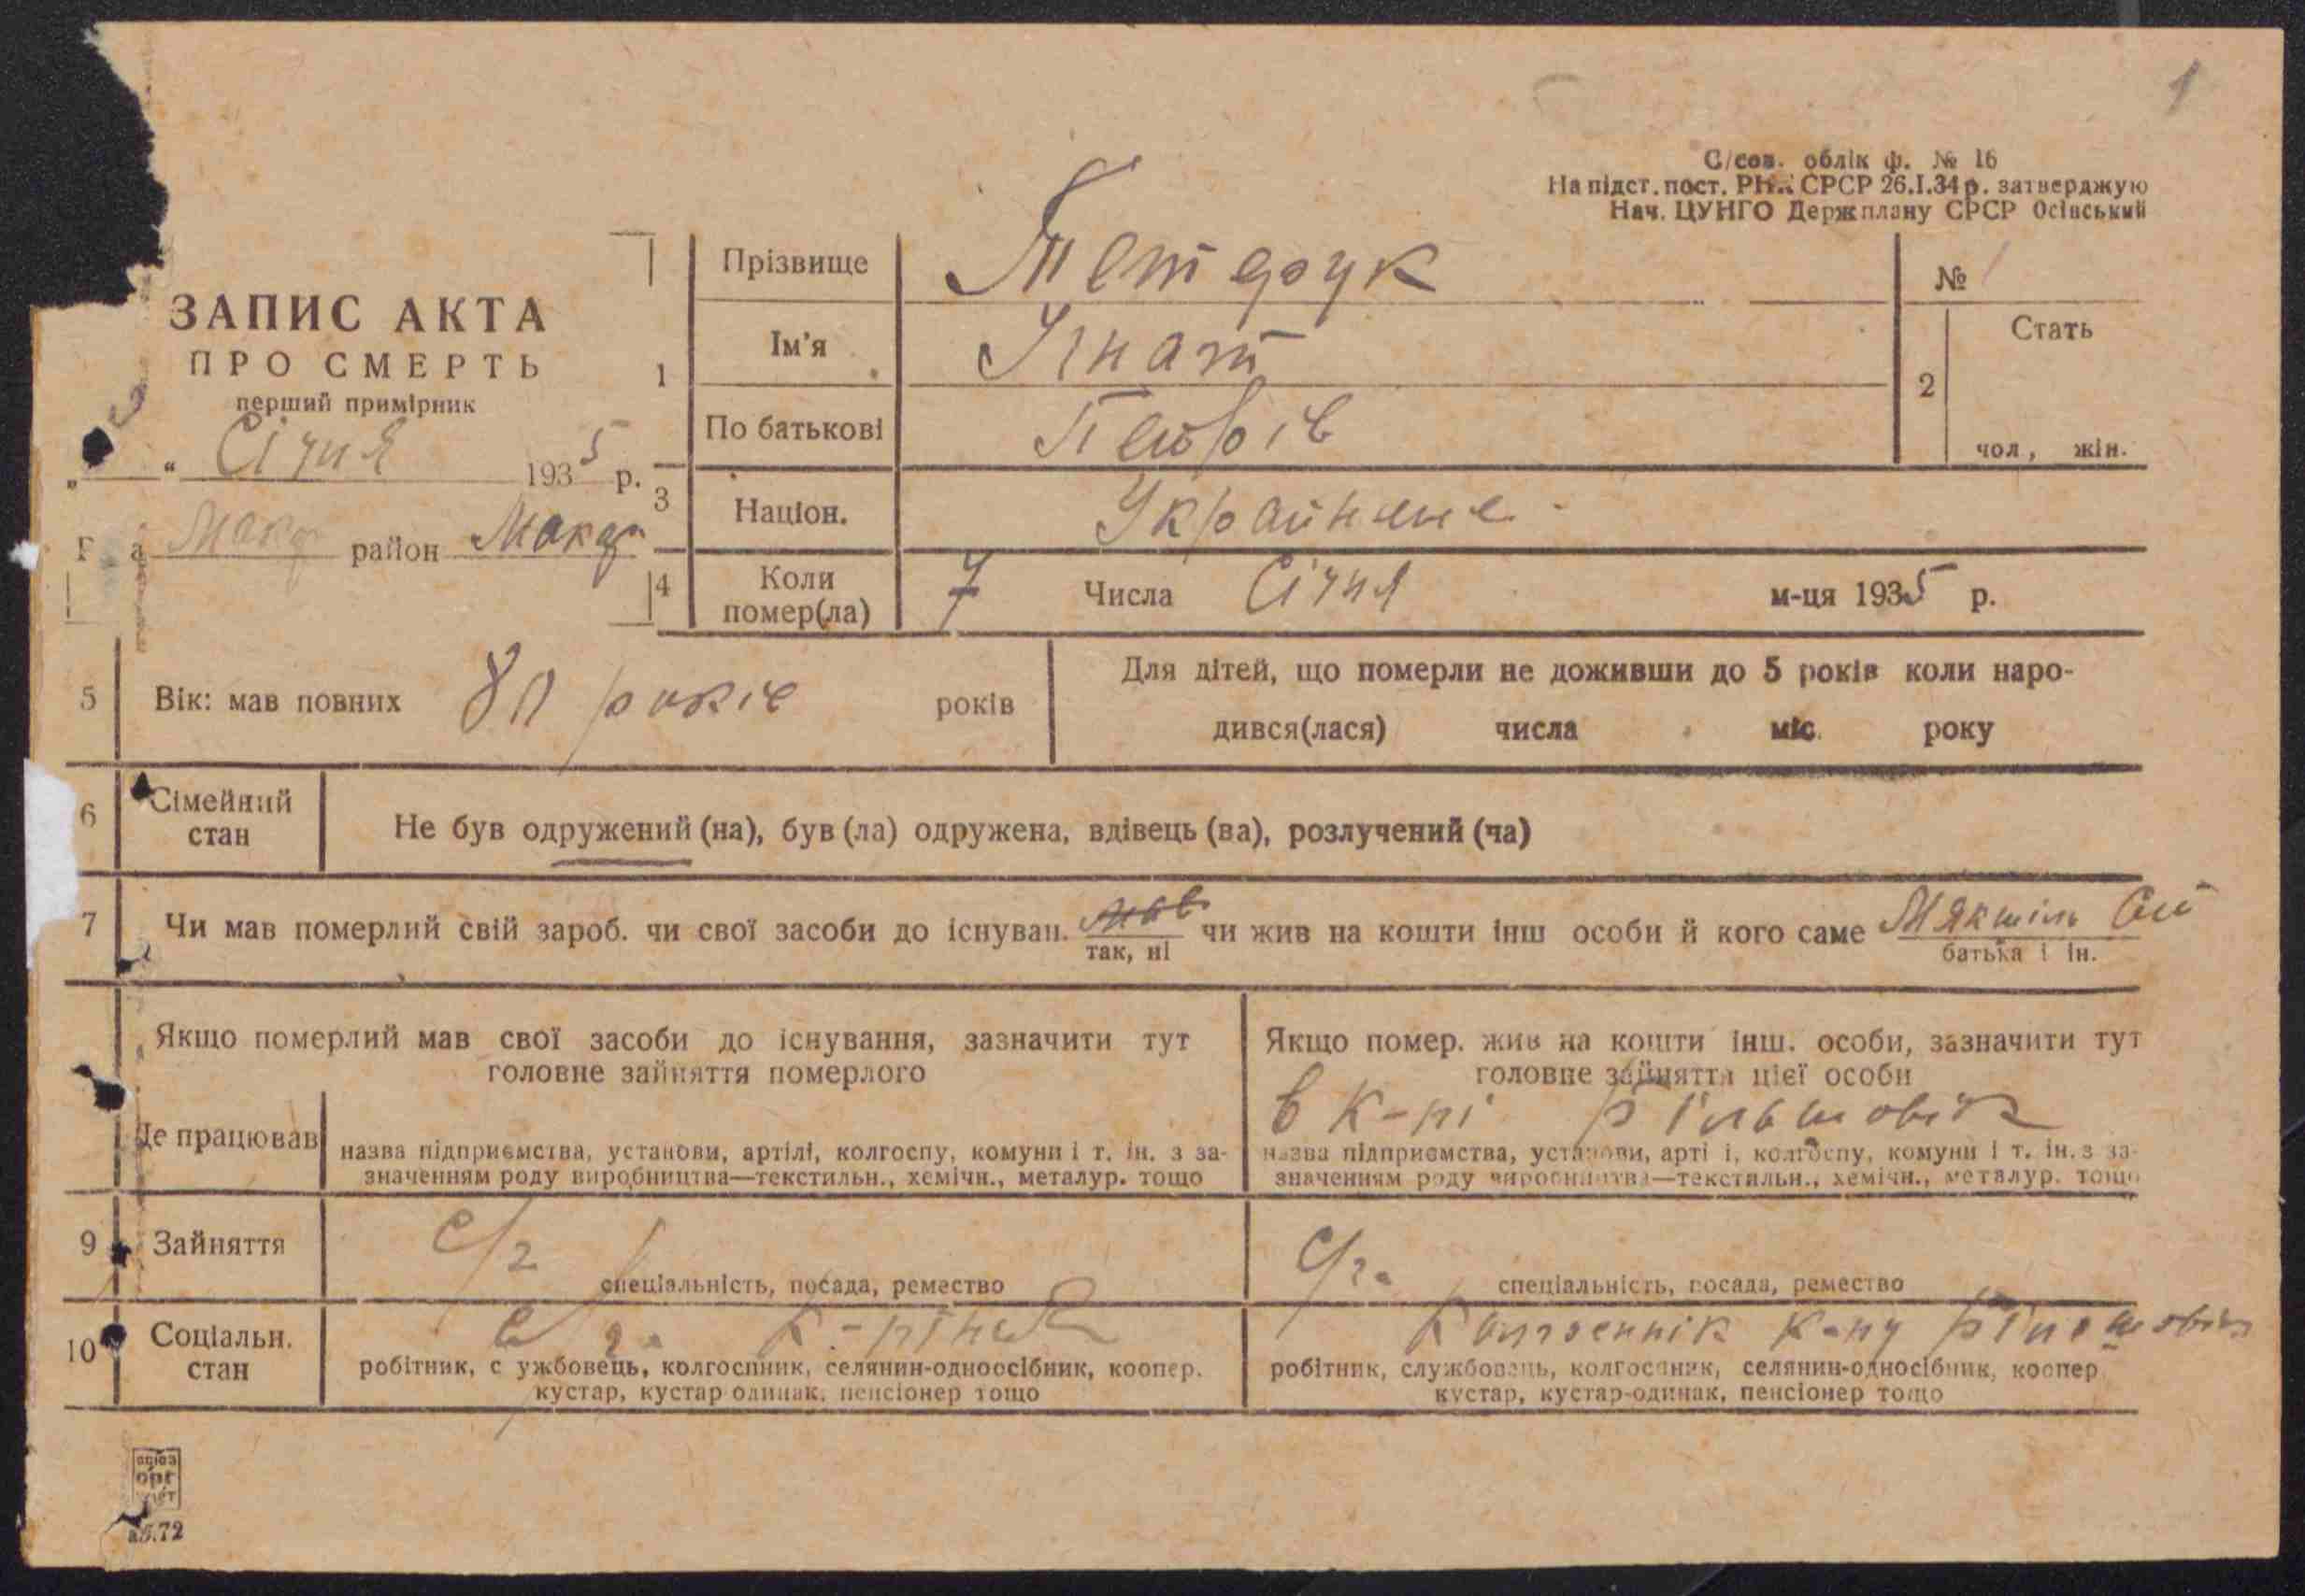 1
С/сов. облік ф. № 16
На підст. пост. РНК СРСР 26.I.34 р. затверджую
Нач. ЦУНГО Держплану СРСР Осінський
ЗАПИС АКТА
ПРО СМЕРТЬ
перший примірник
„ “ Січня 1935 р.
район Макар
1
Прізвище
Ім'я Ігнат
По батькові Петрів
№ 1
2 Стать
чол, жін.
3 Націон.
4 Коли помер(ла) 7 Числа Січня м-ця 1935 р.
5 Вік: мав повних 80 років років
Для дітей, що померли не доживши до 5 років коли наро-
дився(лася) числа міс. року
6 Сімейний стан
Не був одружений (на), був (ла) одружена, вдівець (ва), розлучений (ча)
7 Чи мав померлий свій зароб. чи свої засоби до існуван. мав чи жив на кошти інш особи й кого саме
так, ні
батька і ін.
Якщо померлий мав свої засоби до існування, зазначити тут
головне зайняття померлого
Якщо помер. жив на кошти інш. особи, зазначити тут
головне зайняття цієї особи
Де працював
назва підприємства, установи, артілі, колгоспу, комуни і т. ін. з за-
значенням роду виробництва—текстильн., хемічн., металур. тощо
в к-пі
назва підприємства, установи, артілі, колгоспу, комуни і т. ін. з за-
значенням роду виробництва—текстильн., хемічн., металур. тощо
9 Зайняття
с/г
спеціальність, посада, ремество
с/г.
спеціальність, посада, ремество
10 Соціальн. стан
робітник, службовець, колгоспник, селянин-одноосібник, коопер.
кустар, кустар одинак, пенсіонер тощо
робітник, службовець, колгоспник, селянин-односібник, коопер
кустар, кустар-одинак, пенсіонер тощо